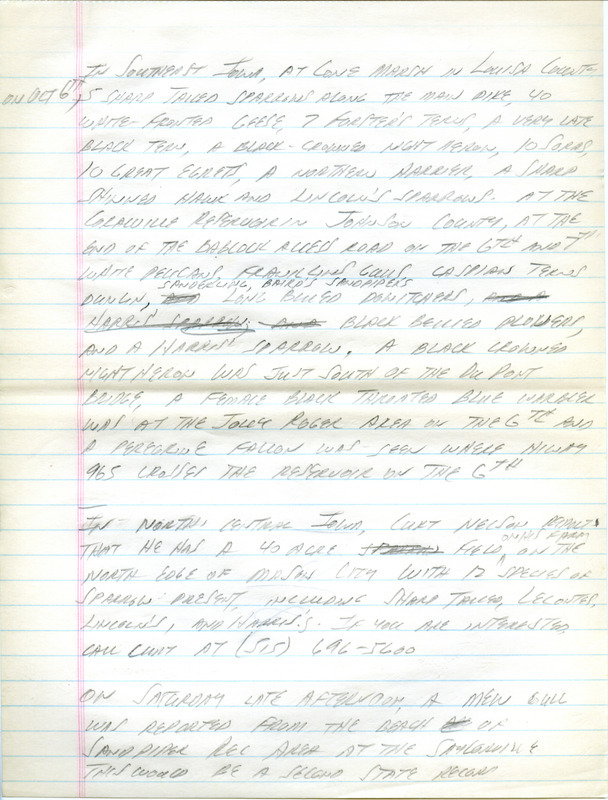 IN SOUTHEAST IOWA, AT CONE MARSH IN LOUISA COUNTY
ON OCT 6TH, 5 SHARP TAILED SPARROWS ALONG THE MAIN DIKE, 40
WHITE-FRONTED GEESE, 7 FORSTER'S TERNS, A VERY LATE
BLACK TERN, A BLACK-CROWNED NIGHT HERON, 10 SORAS,
10 GREAT EGRETS, A NORTHERN HARRIER, A SHARP
SHINNED HAWK AND LINCOLN'S SPARROWS. AT THE
CORALVILLE RESERVOIR IN JOHNSON COUNTY, AT THE
END OF THE BABCOCK ACCESS ROAD ON THE 6TH AND 7TH
WHITE PELICANS, FRANKLINS GULLS, CASPIAN TERNS
SANDERLING, BAIRD'S SANDPIPERS
DUNLIN, LONG BILLED DOWITCHERS,
HARRIS' SPARROW, AND BLACK BELLIED PLOVERS,
AND A HARRIS' SPARROW. A BLACK CROWNED
NIGHT HERON WAS JUST SOUTH OF THE DU PONT
BRIDGE, A FEMALE BLACK THROATED BLUE WARBLER
WAS AT THE JOLLY ROGER AREA ON THE 6TH AND
A PEREGRINE FALCON WAS SEEN WHERE HIWAY
965 CROSSES THE RESERVOIR ON THE 6TH
IN NORTH CENTRAL IOWA, CURT NELSON REPORTS
THAT HE HAS A 40 ACRE FIELD ON HIS FARM, ON THE
NORTH EDGE OF MASON CITY WITH 12 SPECIES OF
SPARROW PRESENT, INCLUDING SHARP TAILED, LECONTES,
LINCOLN'S, AND HARRIS'S. IF YOU ARE INTERESTED
CALL CURT AT (515) 696-5600
ON SATURDAY LATE AFTERNOON, A MEW GULL
WAS REPORTED FROM THE BEACH OF
SANDPIPER REC AREA AT THE SAYLORVILLE
THIS WOULD BE A SECOND STATE RECORD